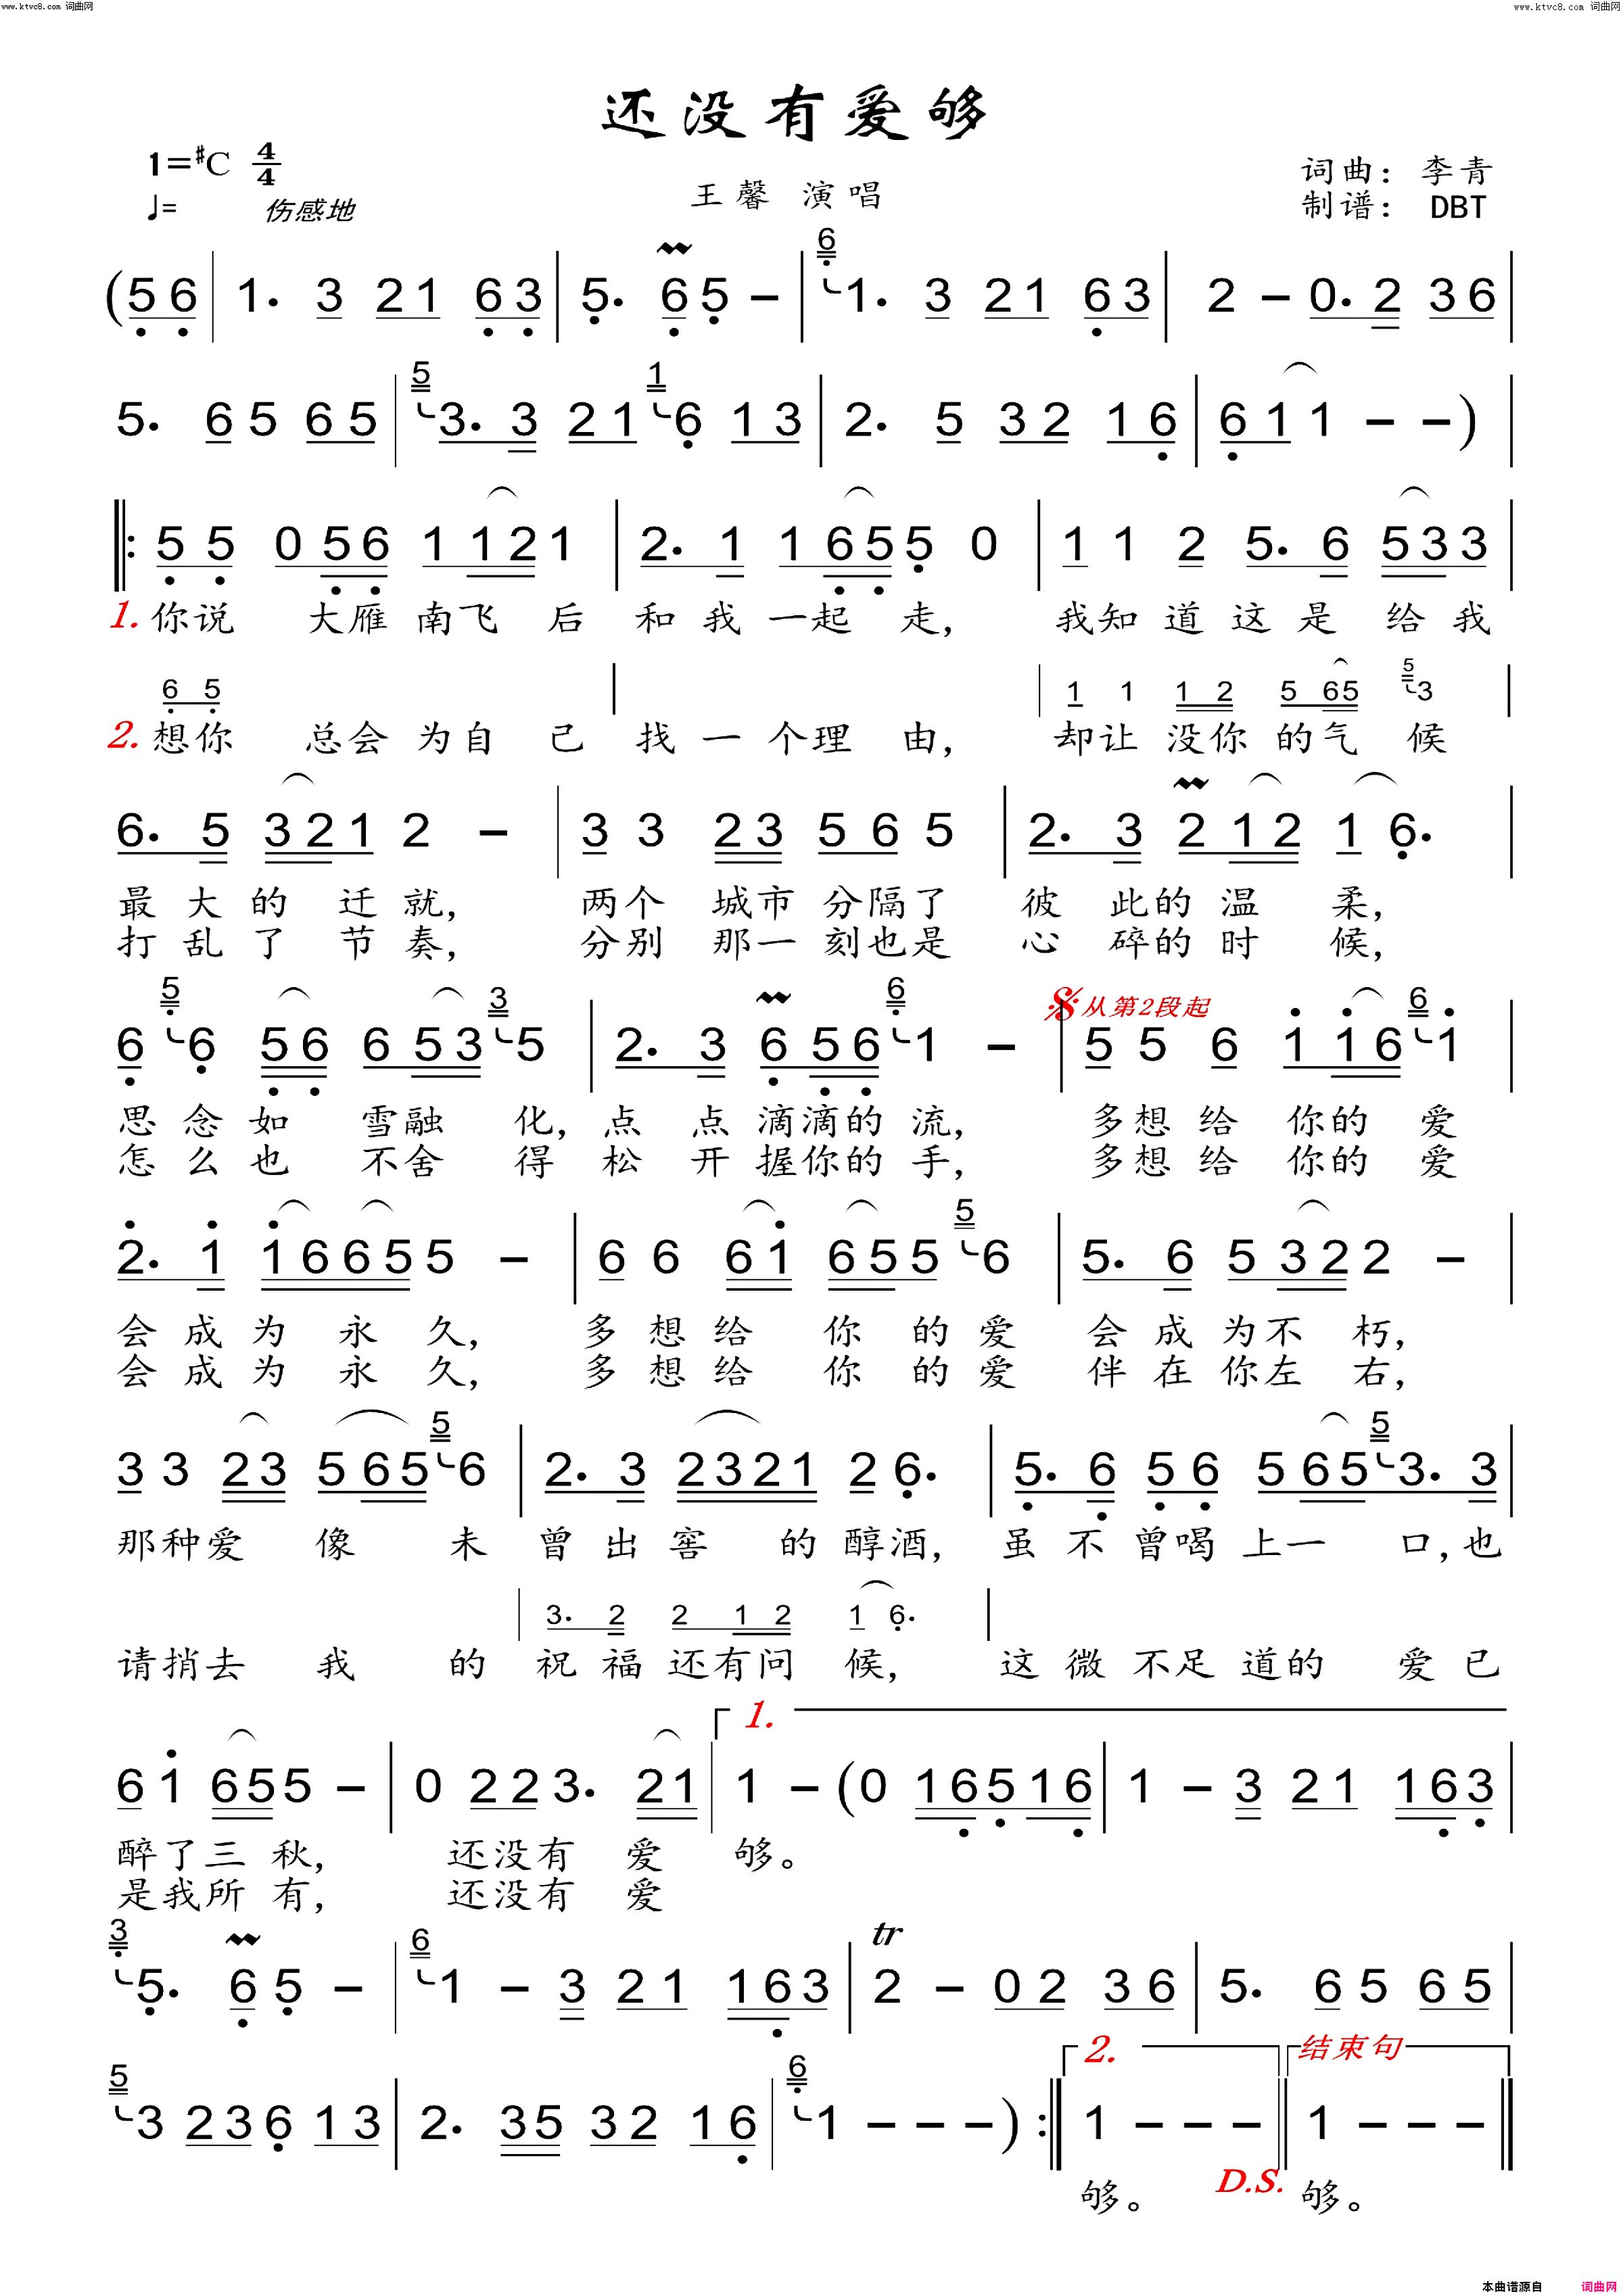 www.ktvc8.com 词曲网 www.ktvc8.com 词曲网
还没有爱够
1=#C 4/4
♩= 伤感地
王馨 演唱
词曲：李青
制谱： DBT
(5 6 | 1. 3 2 1 6 3 | 5. 6 5 - | 6 1. 3 2 1 6 3 | 2 - 0. 2 3 6 |
5. 6 5 6 5 | 5 3. 3 2 1 1 6 1 3 | 2. 5 3 2 1 6 | 6 1 1 - - ) |
‖: 5 5 0 5 6 1 1 2 1 | 2. 1 1 6 5 5 0 | 1 1 2 5. 6 5 3 3 |
1. 你说 大雁南飞后 和我一起走， 我知道这是给我
6 5 | | 1 1 1 2 5 6 5 5 3 |
2. 想你 总会为自己 找一个理由， 却让没你的气候
6. 5 3 2 1 2 - | 3 3 2 3 5 6 5 | 2. 3 2 1 2 1 6. |
最大的迁就， 两个城市分隔了 彼此的温柔，
打乱了节奏， 分别那一刻也是 心碎的时候，
从第2段起
6 5 6 5 6 6 5 3 3 5 | 2. 3 6 5 6 6 1 - | 5 5 6 1 1 6 6 1 |
思念如雪融化， 点点滴滴的流， 多想给你的爱
怎么也不舍得 松开握你的手， 多想给你的爱
2. 1 1 6 6 5 5 - | 6 6 6 1 6 5 5 5 6 | 5. 6 5 3 2 2 - |
会成为永久， 多想给你的爱 会成为不朽，
会成为永久， 多想给你的爱 伴在你左右，
3 3 2 3 5 6 5 5 6 | 2. 3 2 3 2 1 2 6. | 5. 6 5 6 5 6 5 5 3. 3 |
那种爱像未 曾出窖的醇酒， 虽不曾喝上一口，也
| 3. 2 2 1 2 1 6. |
请捎去我的 祝福还有问候， 这微不足道的爱已
1.
6 1 6 5 5 - | 0 2 2 3. 2 1 | 1 - (0 1 6 5 1 6 | 1 - 3 2 1 1 6 3 |
醉了三秋， 还没有爱够。
是我所有， 还没有爱
tr
3 5. 6 5 - | 6 1 - 3 2 1 1 6 3 | 2 - 0 2 3 6 | 5. 6 5 6 5 |
2. 结束句
5 3 2 3 6 1 3 | 2. 3 5 3 2 1 6 | 6 1 - - - ) :‖ 1 - - - ‖ 1 - - - ‖
够。 D.S. 够。
本曲谱源自 词曲网